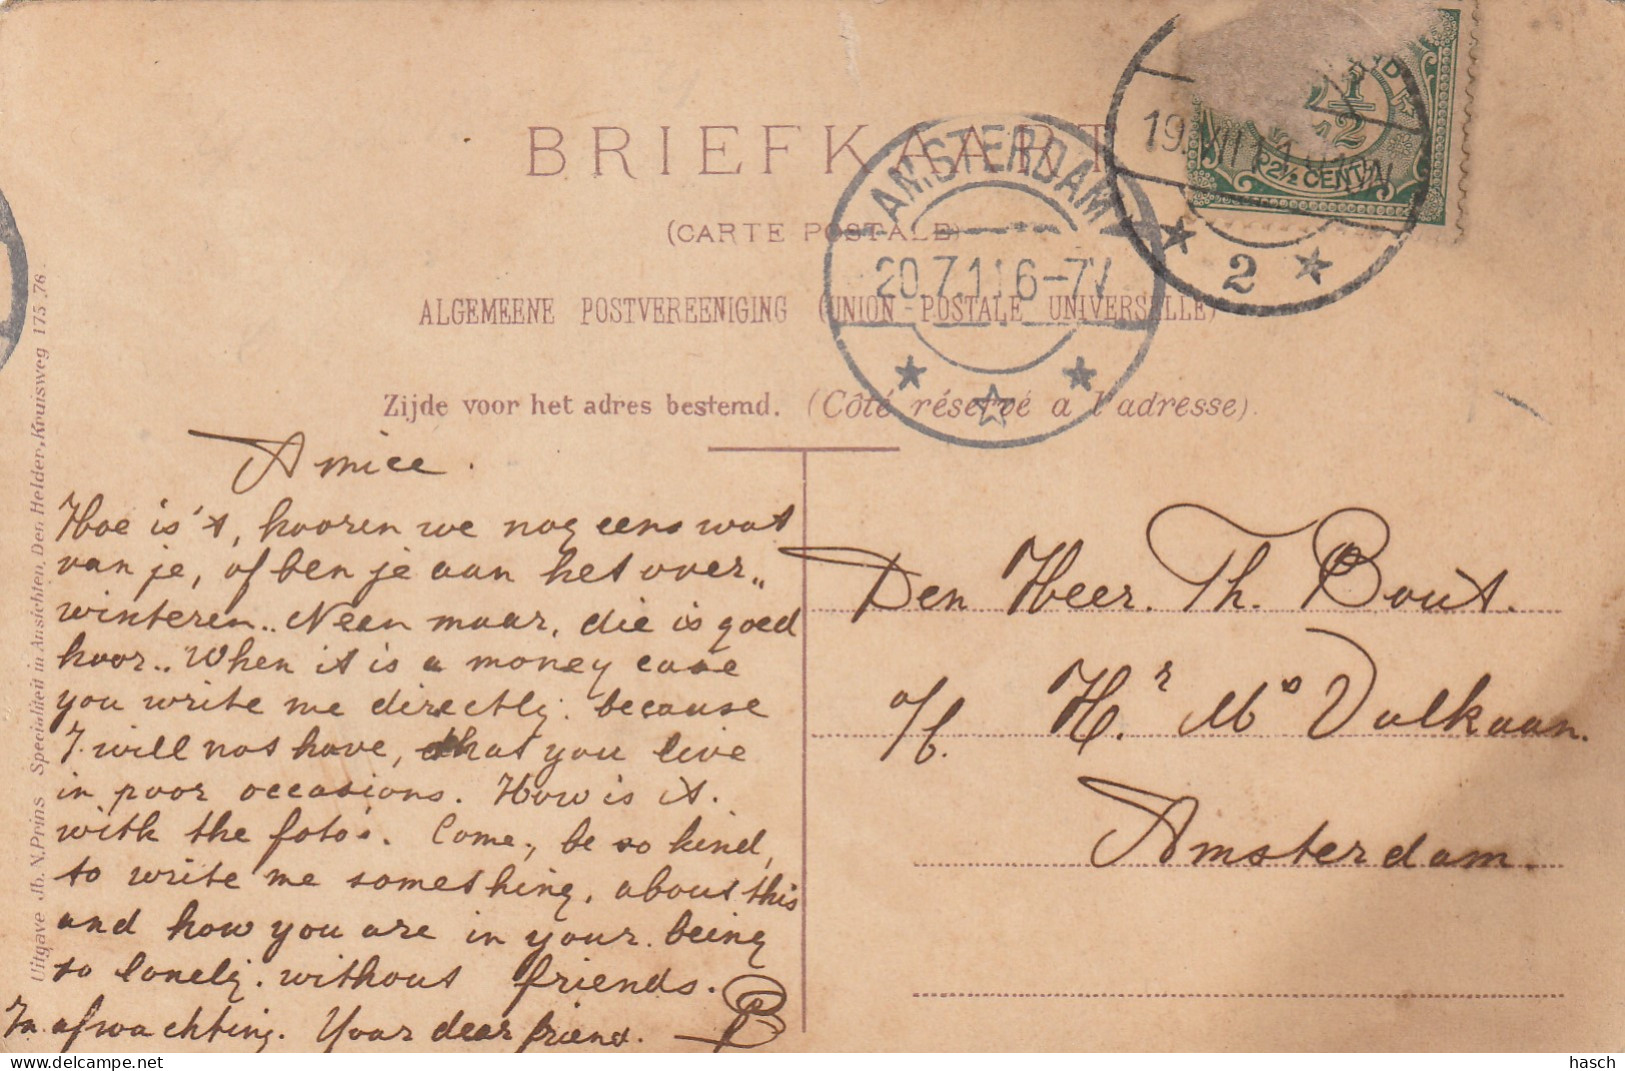 BRIEFKAART
(CARTE POSTALE)
ALGEMEENE POSTVEREENIGING (UNION POSTALE UNIVERSELLE)
Zijde voor het adres bestemd. (Côté réservé a l'adresse).
AMSTERDAM
20.7.11 6-7V
2
2½ CENT
Uitgave Jb. N. Prins Specialiteit in Ansichten, Den Helder, Kruisweg 175, 76.
Amice.
Hoe is 't, hooren we nog eens wat
van je, of ben je aan het over„
winteren.. Neen maar, die is goed
hoor.. When it is a money case
you write me directly. because
I will not have, that you live
in poor occasions. How is it.
with the foto's. Come, be so kind,
to write me something, about this
and how you are in your being
so lonely. without friends.
In afwachting. Your dear friend. B
Den Heer. Th. Bout.
a/b. Hr. Ms Valkaan.
Amsterdam.
hasch